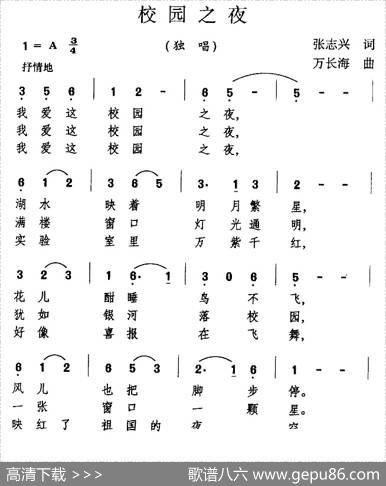 校园之夜
1=A 3/4
(独唱)
张志兴 词
抒情地
万长海 曲
3 5 6 | 1 2 - | 6 5 - | 5 - - |
我爱这 校园 之夜,
我爱这 校园 之夜,
我爱这 校园 之夜,
6 1 2 | 3 6 5 | 3· 1 3 | 2 - - |
湖水 映着 明月繁星,
满楼 窗口 灯光通明,
实验 室里 万紫千红,
3 2 3 | 1 6· 1 | 3 0 6 | 5 - - |
花儿 酣睡 鸟不飞,
犹如 银河 落校园,
好像 喜报 在飞舞,
6 1 2 | 5 3 | 2· 2 6 | 1 - - |
风儿 也把 脚步停。
一张 窗口 一颗星。
映红了 祖国的 夜
高清下载 >>>
歌谱八六 www.gepu86.com